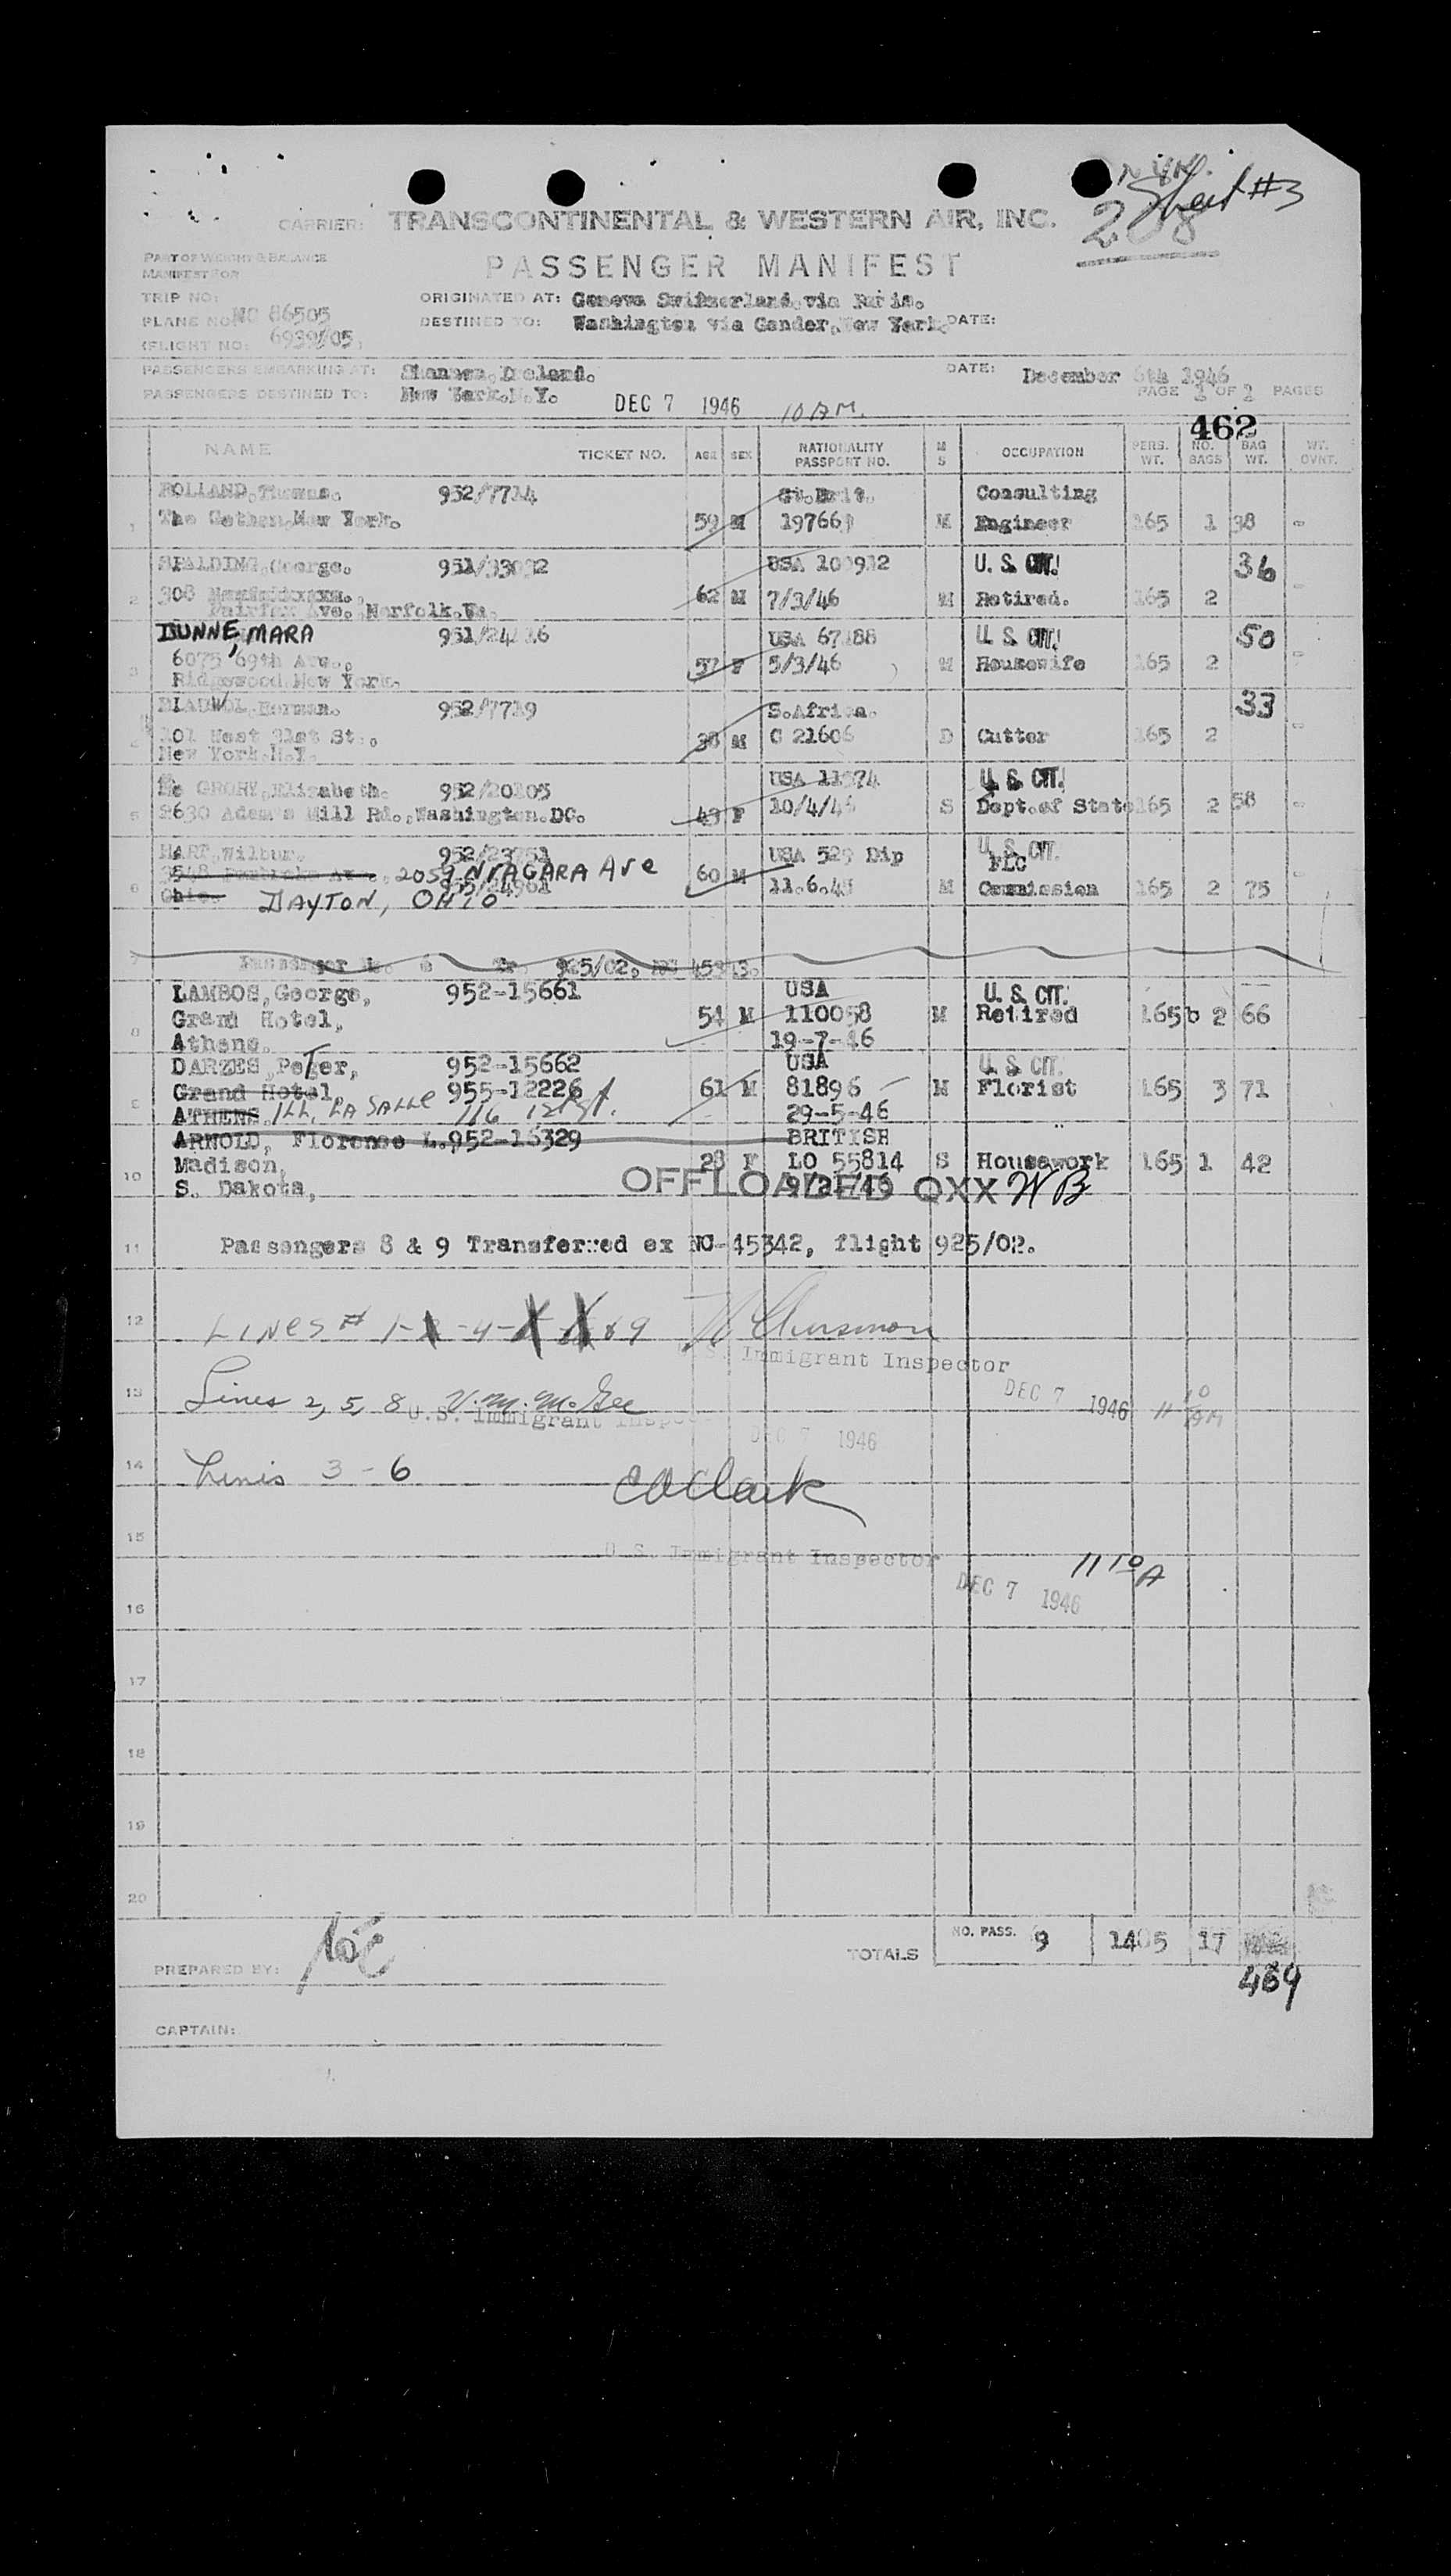 Sheet #3
208
CARRIER: TRANSCONTINENTAL & WESTERN AIR, INC.
PART OF WEIGHT & BALANCE
MANIFEST FOR
PASSENGER MANIFEST
TRIP NO:
PLANE NO: NC 86505
(FLIGHT NO: 6939/05)
ORIGINATED AT: Geneva Switzerland via Paris.
DESTINED TO: Washington via Gander, New York. DATE:
PASSENGERS EMBARKING AT: Shannon, Ireland. DATE: December 6th 1946
PASSENGERS DESTINED TO: New York. N.Y. DEC 7 1946 10 AM. PAGE OF PAGES
462
NAME TICKET NO. AGE SEX NATIONALITY PASSPORT NO. M S OCCUPATION PERS. WT. NO. BAGS BAG WT. WT. OVNT.
Thomas. 952/7714 Gt.Brit. Consulting
1 The Gotham, New York. 59 M 19766 M Engineer 165 1 38 -
SPALDING, George. 951/33032 USA U. S. CIT. 36
2 308 62 M 7/3/46 M Retired. 165 2 -
Fairfax Ave. Norfolk. Va.
DUNNE, MARA USA U. S. CIT. 50
3 6075 69th Ave., 57 F 5/3/46 M Housewife 165 2 -
Ridgewood New York.
Herman. 952/7719 S.Africa. 33
4 101 West 31st St., 38 M C 21606 D Cutter 165 2 -
New York. N.Y.
Elisabeth. 952/20105 USA U. S. CIT.
5 2630 Adam's Mill Rd., Washington. DC. 43 F 10/4/46 S Dept. of State 165 2 58 -
HART, Wilbur. 952/23751 USA 529 Dip U. S. CIT.
2059 NIAGARA Ave FLC
6 Ohio. DAYTON, OHIO 955/24961 60 M 11.6.45 M Commission 165 2 75 -
7 Passenger 925/02,
LAMBOS, George, 952-15661 USA U. S. CIT.
8 Grand Hotel, 54 M 110058 M Retired 165 2 66
Athens. 19-7-46
DARZES, Peter, 952-15662 USA U. S. CIT.
9 Grand Hotel, 955-12226 61 M 81896 M Florist 165 3 71
ATHENS. ILL. LA SALLE 116 1st St. 29-5-46
ARNOLD, Florence L. 952-16329 BRITISH
Madison, 28 F LO 55814 S Housework 165 1 42
10 S. Dakota, OFFLOADED QXX WB
11 Passengers 8 & 9 Transferred ex NC-45342, flight 925/02.
12 LINES # 1- -4- 9
U.S. Immigrant Inspector
13 Lines 2, 5, 8 V. M. McGee DEC 7 1946 11 10 AM
U.S. Immigrant Inspector
DEC 7 1946
14 Lines 3 - 6 Clark
15
U.S. Immigrant Inspector 11 10 A
DEC 7 1946
16
17
18
19
20
TOTALS NO. PASS. 9 1485 17
PREPARED BY:
469
CAPTAIN: